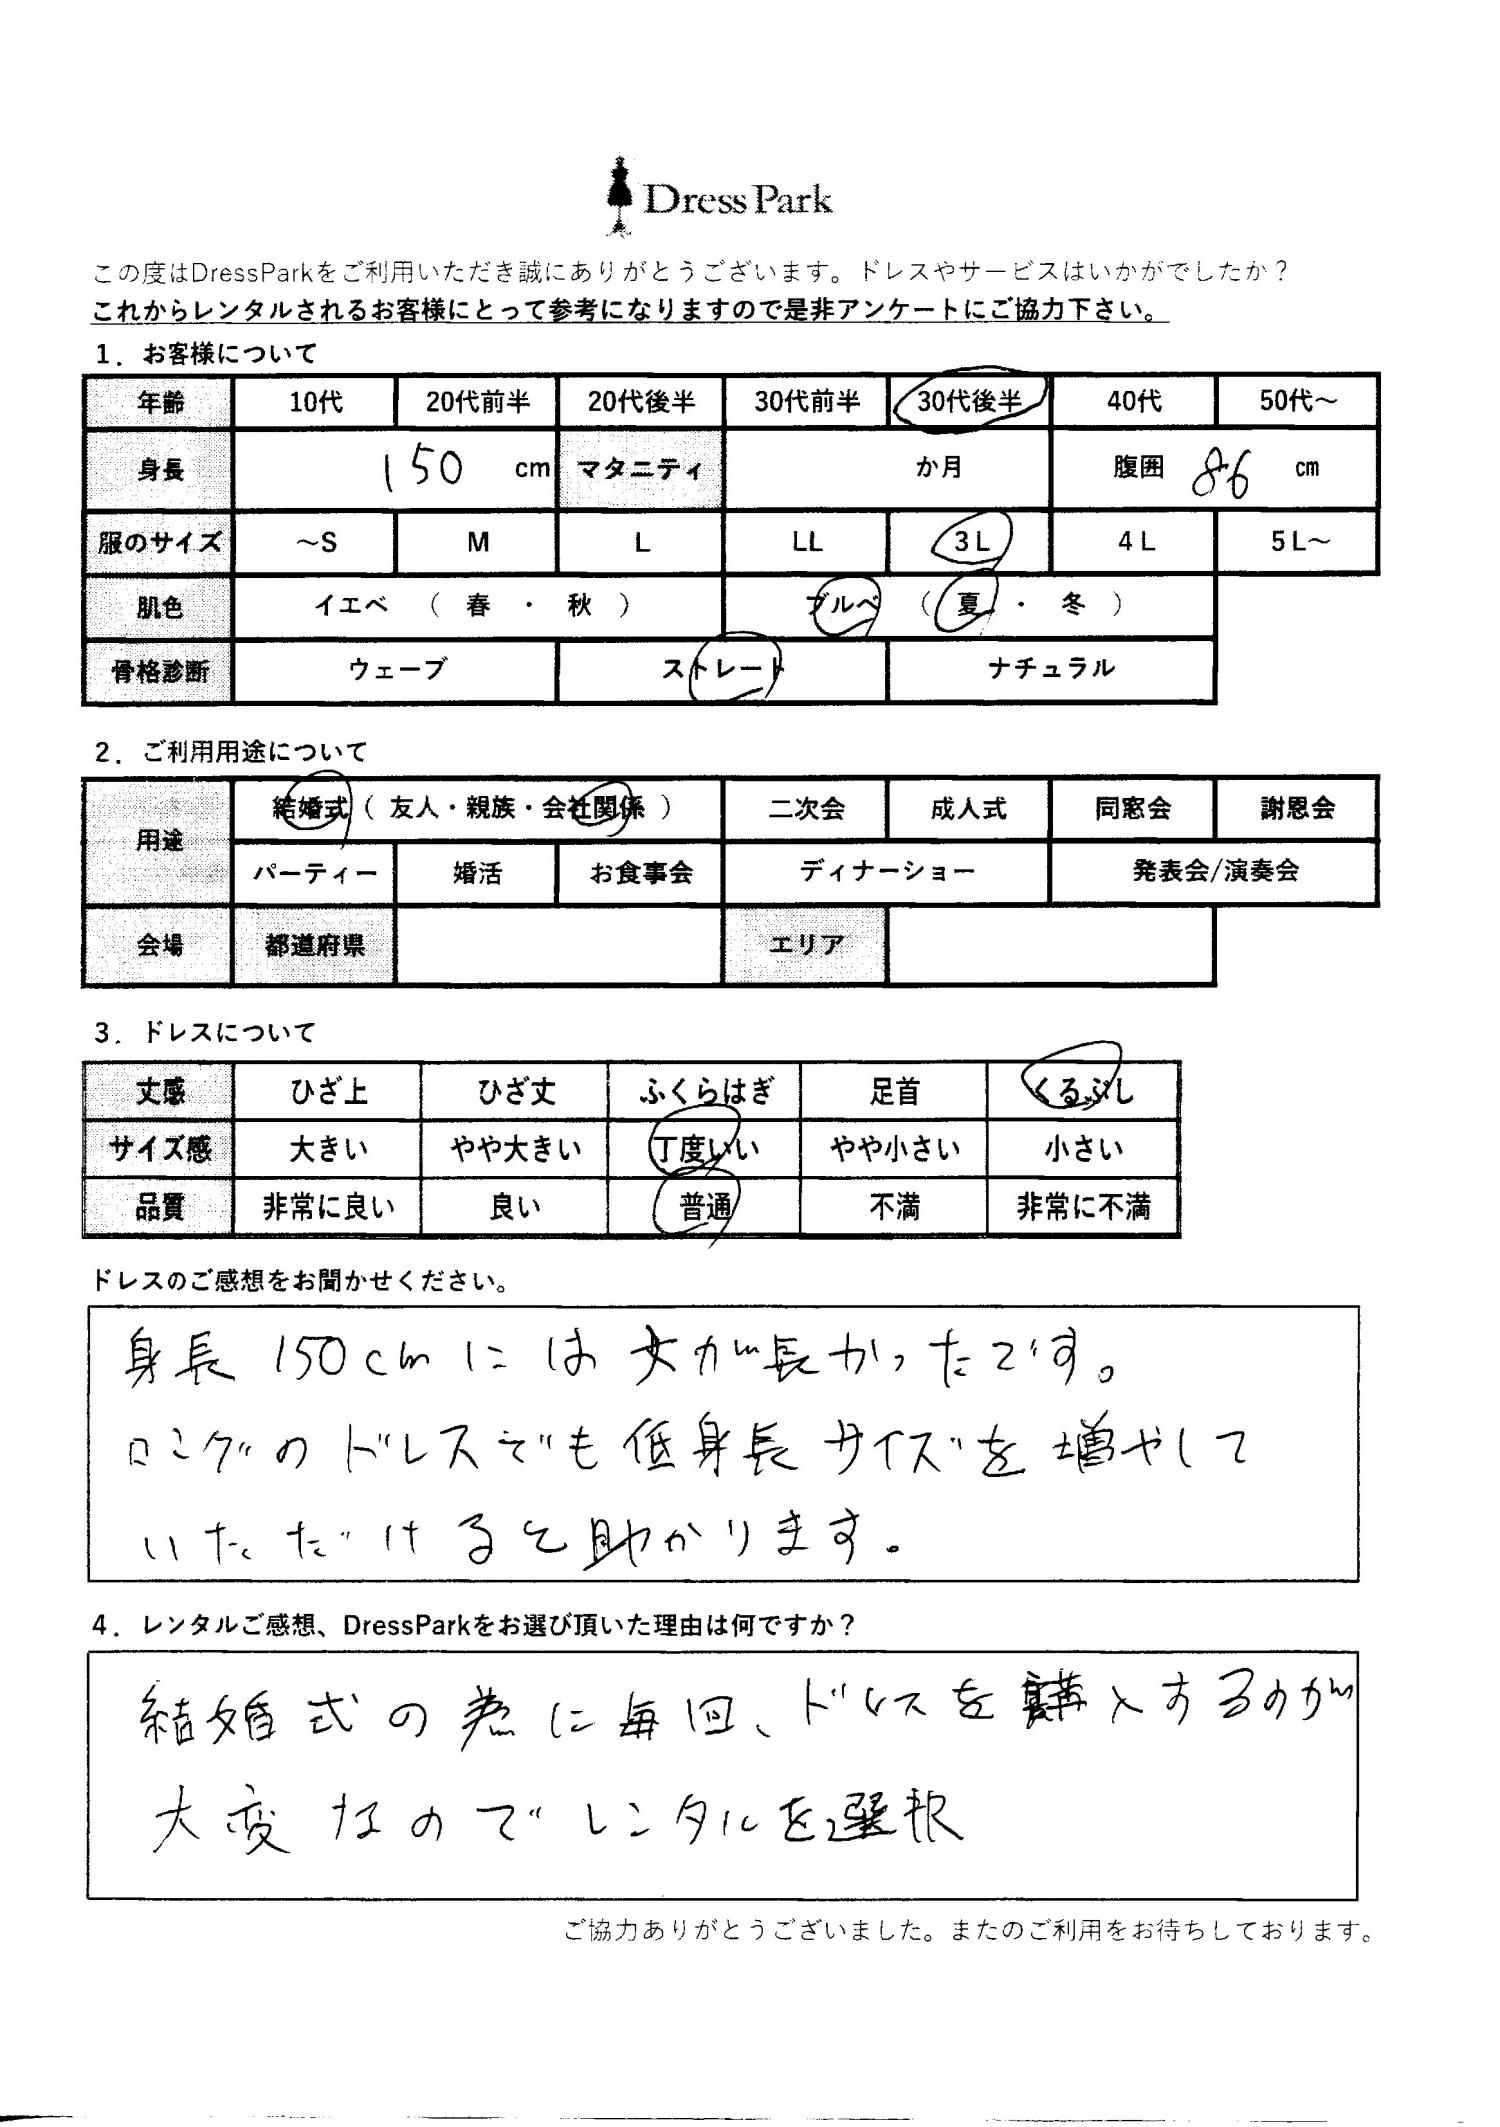 DressPark
この度はDressParkをご利用いただき誠にありがとうございます。ドレスやサービスはいかがでしたか？
これからレンタルされるお客様にとって参考になりますので是非アンケートにご協力下さい。
1．お客様について
年齢 10代 20代前半 20代後半 30代前半 30代後半 40代 50代～
身長 150 cm マタニティ か月 腹囲 86 cm
服のサイズ ～S M L LL 3L 4L 5L～
肌色 イエベ （ 春 ・ 秋 ） ブルベ （ 夏 ・ 冬 ）
骨格診断 ウェーブ ストレート ナチュラル
2．ご利用用途について
用途 結婚式（ 友人・親族・会社関係 ） 二次会 成人式 同窓会 謝恩会
パーティー 婚活 お食事会 ディナーショー 発表会/演奏会
会場 都道府県 エリア
3．ドレスについて
丈感 ひざ上 ひざ丈 ふくらはぎ 足首 くるぶし
サイズ感 大きい やや大きい 丁度いい やや小さい 小さい
品質 非常に良い 良い 普通 不満 非常に不満
ドレスのご感想をお聞かせください。
身長150cmには丈が長かったです。
ロングのドレスでも低身長サイズを増やして
いただけると助かります。
4．レンタルご感想、DressParkをお選び頂いた理由は何ですか？
結婚式の為に毎回、ドレスを購入するのが
大変なのでレンタルを選択
ご協力ありがとうございました。またのご利用をお待ちしております。